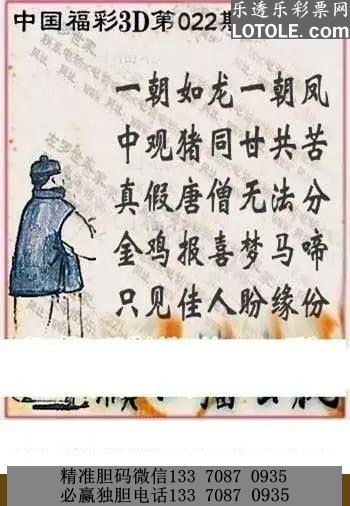 乐透乐彩票网
LOTOLE.COM
中国福彩3D第022期
一朝如龙一朝凤
中观猪同甘共苦
真假唐僧无法分
金鸡报喜梦马啼
只见佳人盼缘份
精准胆码微信133 7087 0935
必赢独胆电话133 7087 0935